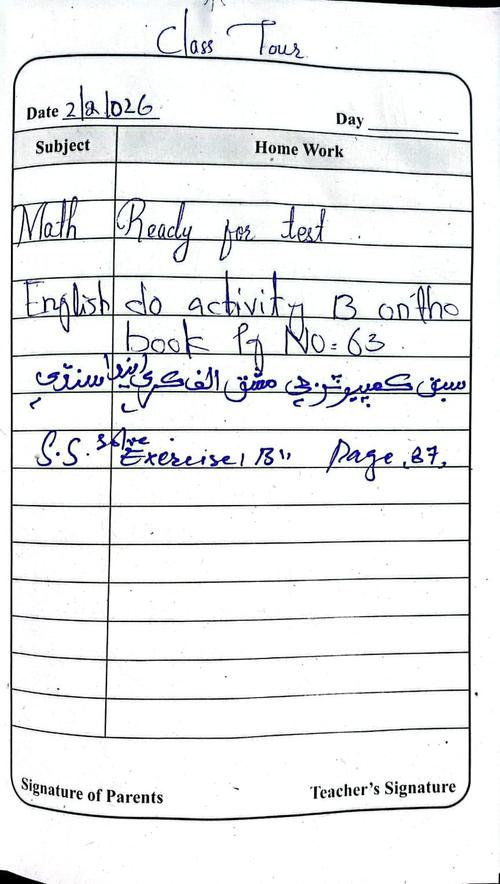 Class Tour
Date 2/2/026
Day
Subject Home Work
Math Ready for test
English do activity B on tho
book Pg No = 63
سبق ڪمپيوٽر جي مشق الف ڪري اينديو سنڌي
S.S. solve Exercise "B" Page 87.
Signature of Parents Teacher's Signature